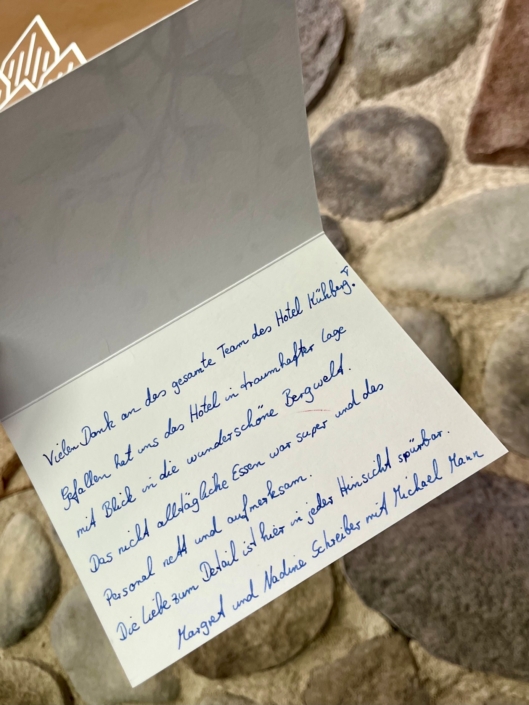 Vielen Dank an das gesamte Team des Hotel Kühberg!
Gefallen hat uns das Hotel in traumhafter Lage
mit Blick in die wunderschöne Bergwelt.
Das nicht alltägliche Essen war super und das
Personal nett und aufmerksam.
Die Liebe zum Detail ist hier in jeder Hinsicht spürbar.
Margret und Nadine Schreiber mit Michael Mann